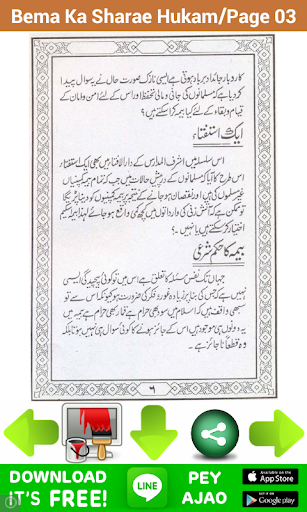 Bema Ka Sharae Hukam/Page 03
کاروبار جائداد برباد ہوتی ہے ایسی نازک صورت حال نے یہ سوال پیدا
کر دیا ہے کہ مسلمانوں کی جانی و مالی تحفظ اور اس کے لئے امن و امان کے
قیام و بقاء کے لئے کیا بیمہ کرا سکتے ہیں؟
ایک استفتاء
اس سلسلہ میں اشرف المدارس کے دار الافتاء میں بھی ایک استفتاء
اس طرح کا آیا کہ مسلمانوں کے درپیش حالات ہیں جب کہ تمام بیمہ کمپنیاں
غیر مسلموں کی ہیں اور نقصان ہو جانے پر بیمہ کمپنیوں کو دینا پڑے گا
تو ممکن ہے کہ آتش زنی کی وارداتوں میں کچھ کمی واقع ہو جائے لہٰذا بیمہ
اختیار کر سکتے ہیں یا نہیں؟
بیمہ کا حکم شرعی
جہاں تک نفس مسئلہ کا تعلق ہے اس میں تو کوئی پیچیدگی ایسی
نہیں ہے کہ جس کی بنا پر زیادہ غور و فکر کی ضرورت ہو کیونکہ اس سے تو
ہر شخص واقف ہے کہ اسلام میں سود بھی حرام ہے قمار بھی حرام ہے جبکہ بیمہ میں
یہ دونوں ہی موجود ہیں، اس کے جائز ہونے کا کوئی سوال ہی نہیں ہوتا بلکہ
وہ قطعاً ناجائز ہے۔
٦
DOWNLOAD
IT'S FREE!
LINE
PEY
AJAO
Available on the
App Store
GET IT ON
Google play